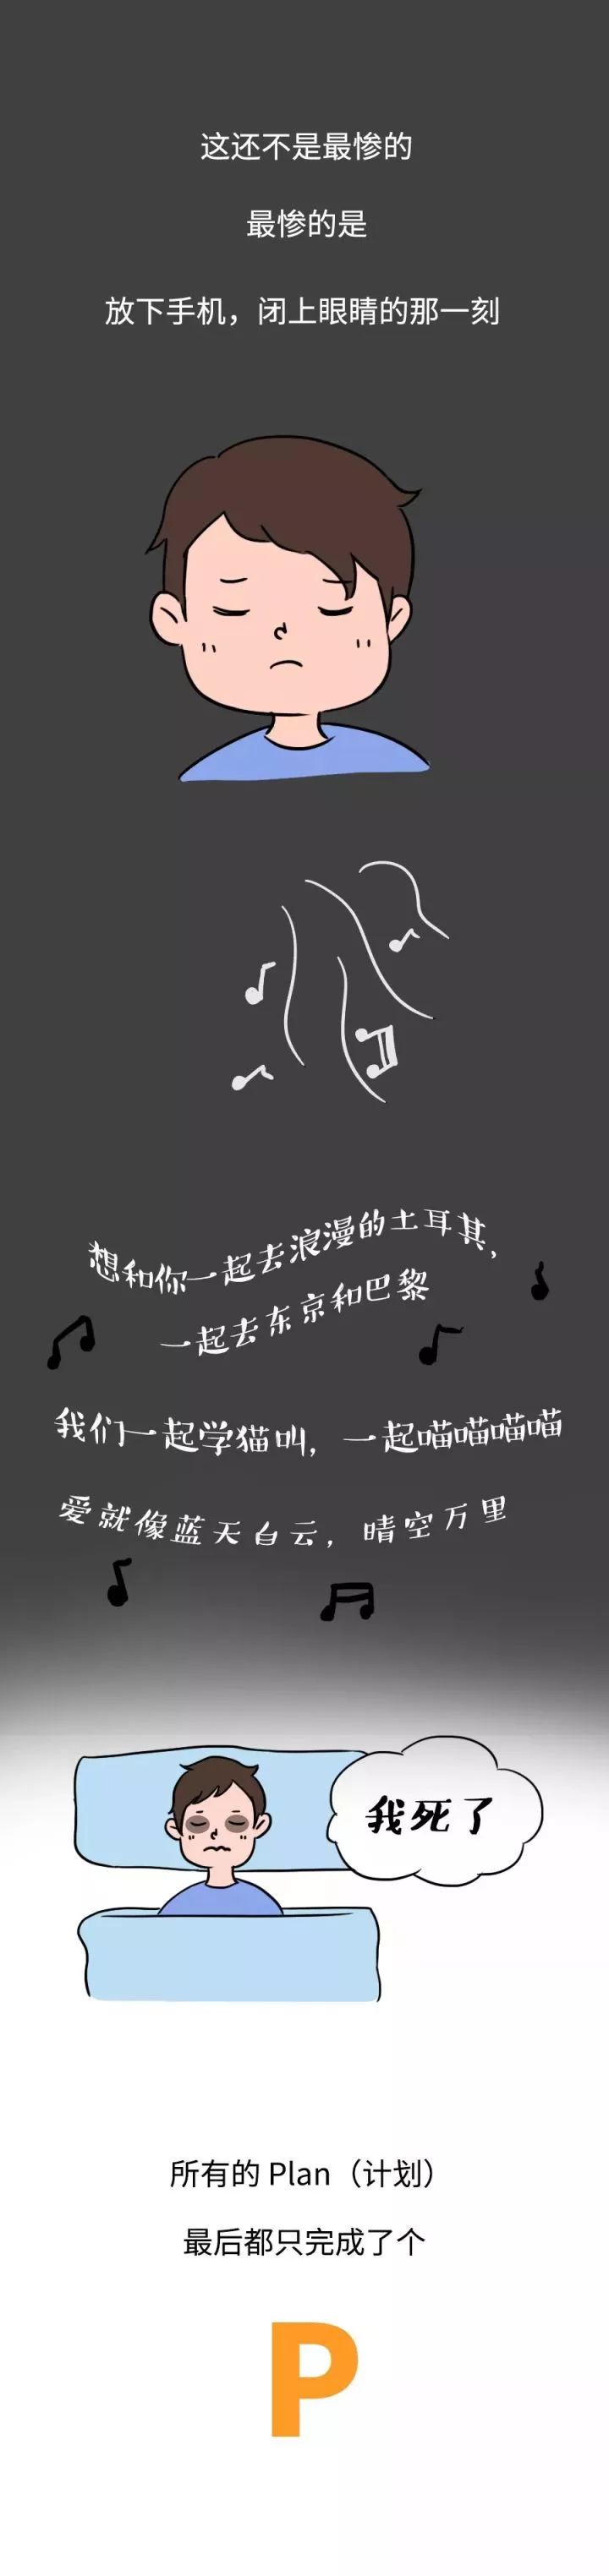 这还不是最惨的
最惨的是
放下手机，闭上眼睛的那一刻
想和你一起去浪漫的土耳其，
一起去东京和巴黎
我们一起学猫叫，一起喵喵喵喵
爱就像蓝天白云，晴空万里
我死了
所有的 Plan（计划）
最后都只完成了个
P